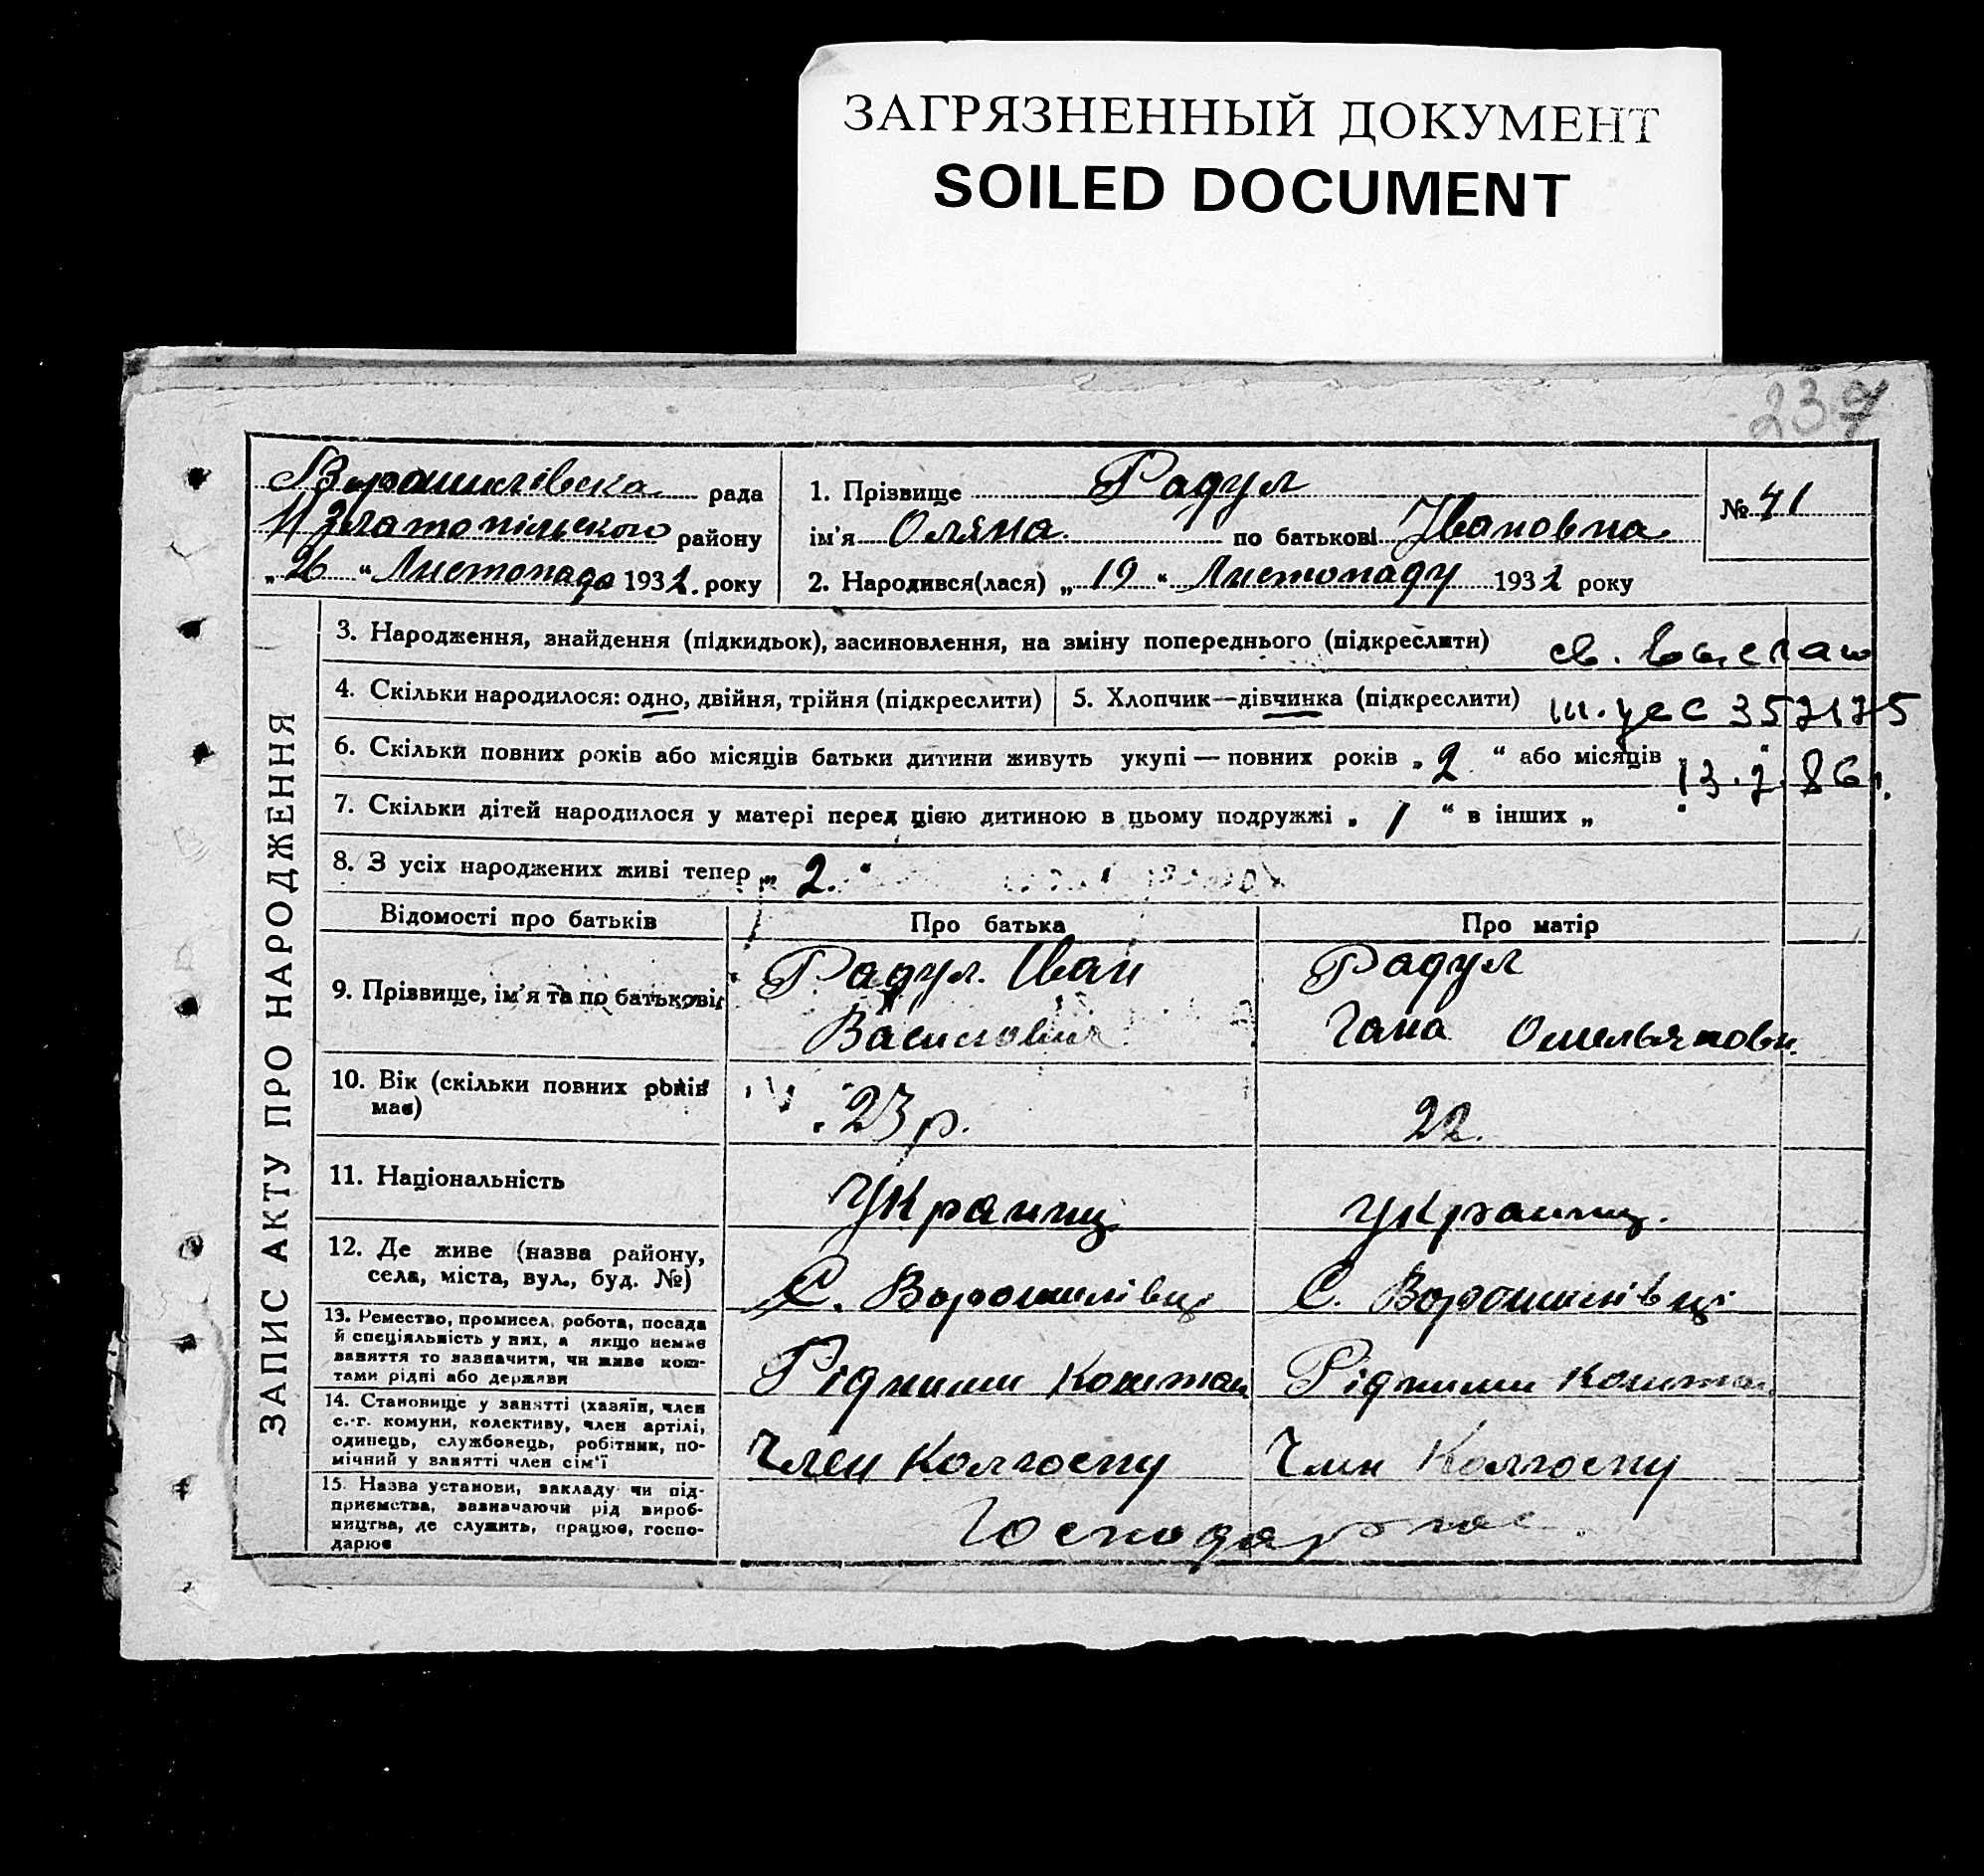 ЗАГРЯЗНЕННЫЙ ДОКУМЕНТ
SOILED DOCUMENT
Ворошилівска рада
Н Златопільского району
„26“ Листопада 1932. року
1. Прізвище Радул
ім'я Оляна по батькові Івановна
2. Народився(лася) „19“ Листопаду 1932 року
№ 41
ЗАПИС АКТУ ПРО НАРОДЖЕННЯ
3. Народження, знайдення (підкидьок), засиновлення, на зміну попереднього (підкреслити)
св.
4. Скільки народилося: одно, двійня, трійня (підкреслити)
5. Хлопчик—дівчинка (підкреслити)
6. Скільки повних років або місяців батьки дитини живуть укупі — повних років „2“ або місяців
7. Скільки дітей народилося у матері перед цією дитиною в цьому подружжі „1“ в інших „
8. З усіх народжених живі тепер „2.“
Відомості про батьків
Про батька
Про матір
9. Прізвище, ім'я та по батькові
Радул. Іван
Василович
Радул
Гана Омельяновн.
10. Вік (скільки повних років
має)
23 р.
22.
11. Національність
Украинц
Украинц.
12. Де живе (назва району,
села, міста, вул., буд. №)
С. Ворошилівці
С. Ворошилівці
13. Ремество, промисел, робота, посада
й спеціяльність у них, а якщо немає
заняття то зазначити, чи живе кош-
тами рідні або держави
Рідними коштам
Рідними коштам
14. Становище у занятті (хазяїн, член
с.-г. комуни, колективу, член артілі,
одинець, службовець, робітник, по-
мічний у занятті член сім'ї
Член колгоспу
Член колгоспу
15. Назва установи, закладу чи під-
приємства, зазначаючи рід вироб-
ництва, де служить, працює, госпо-
дарює